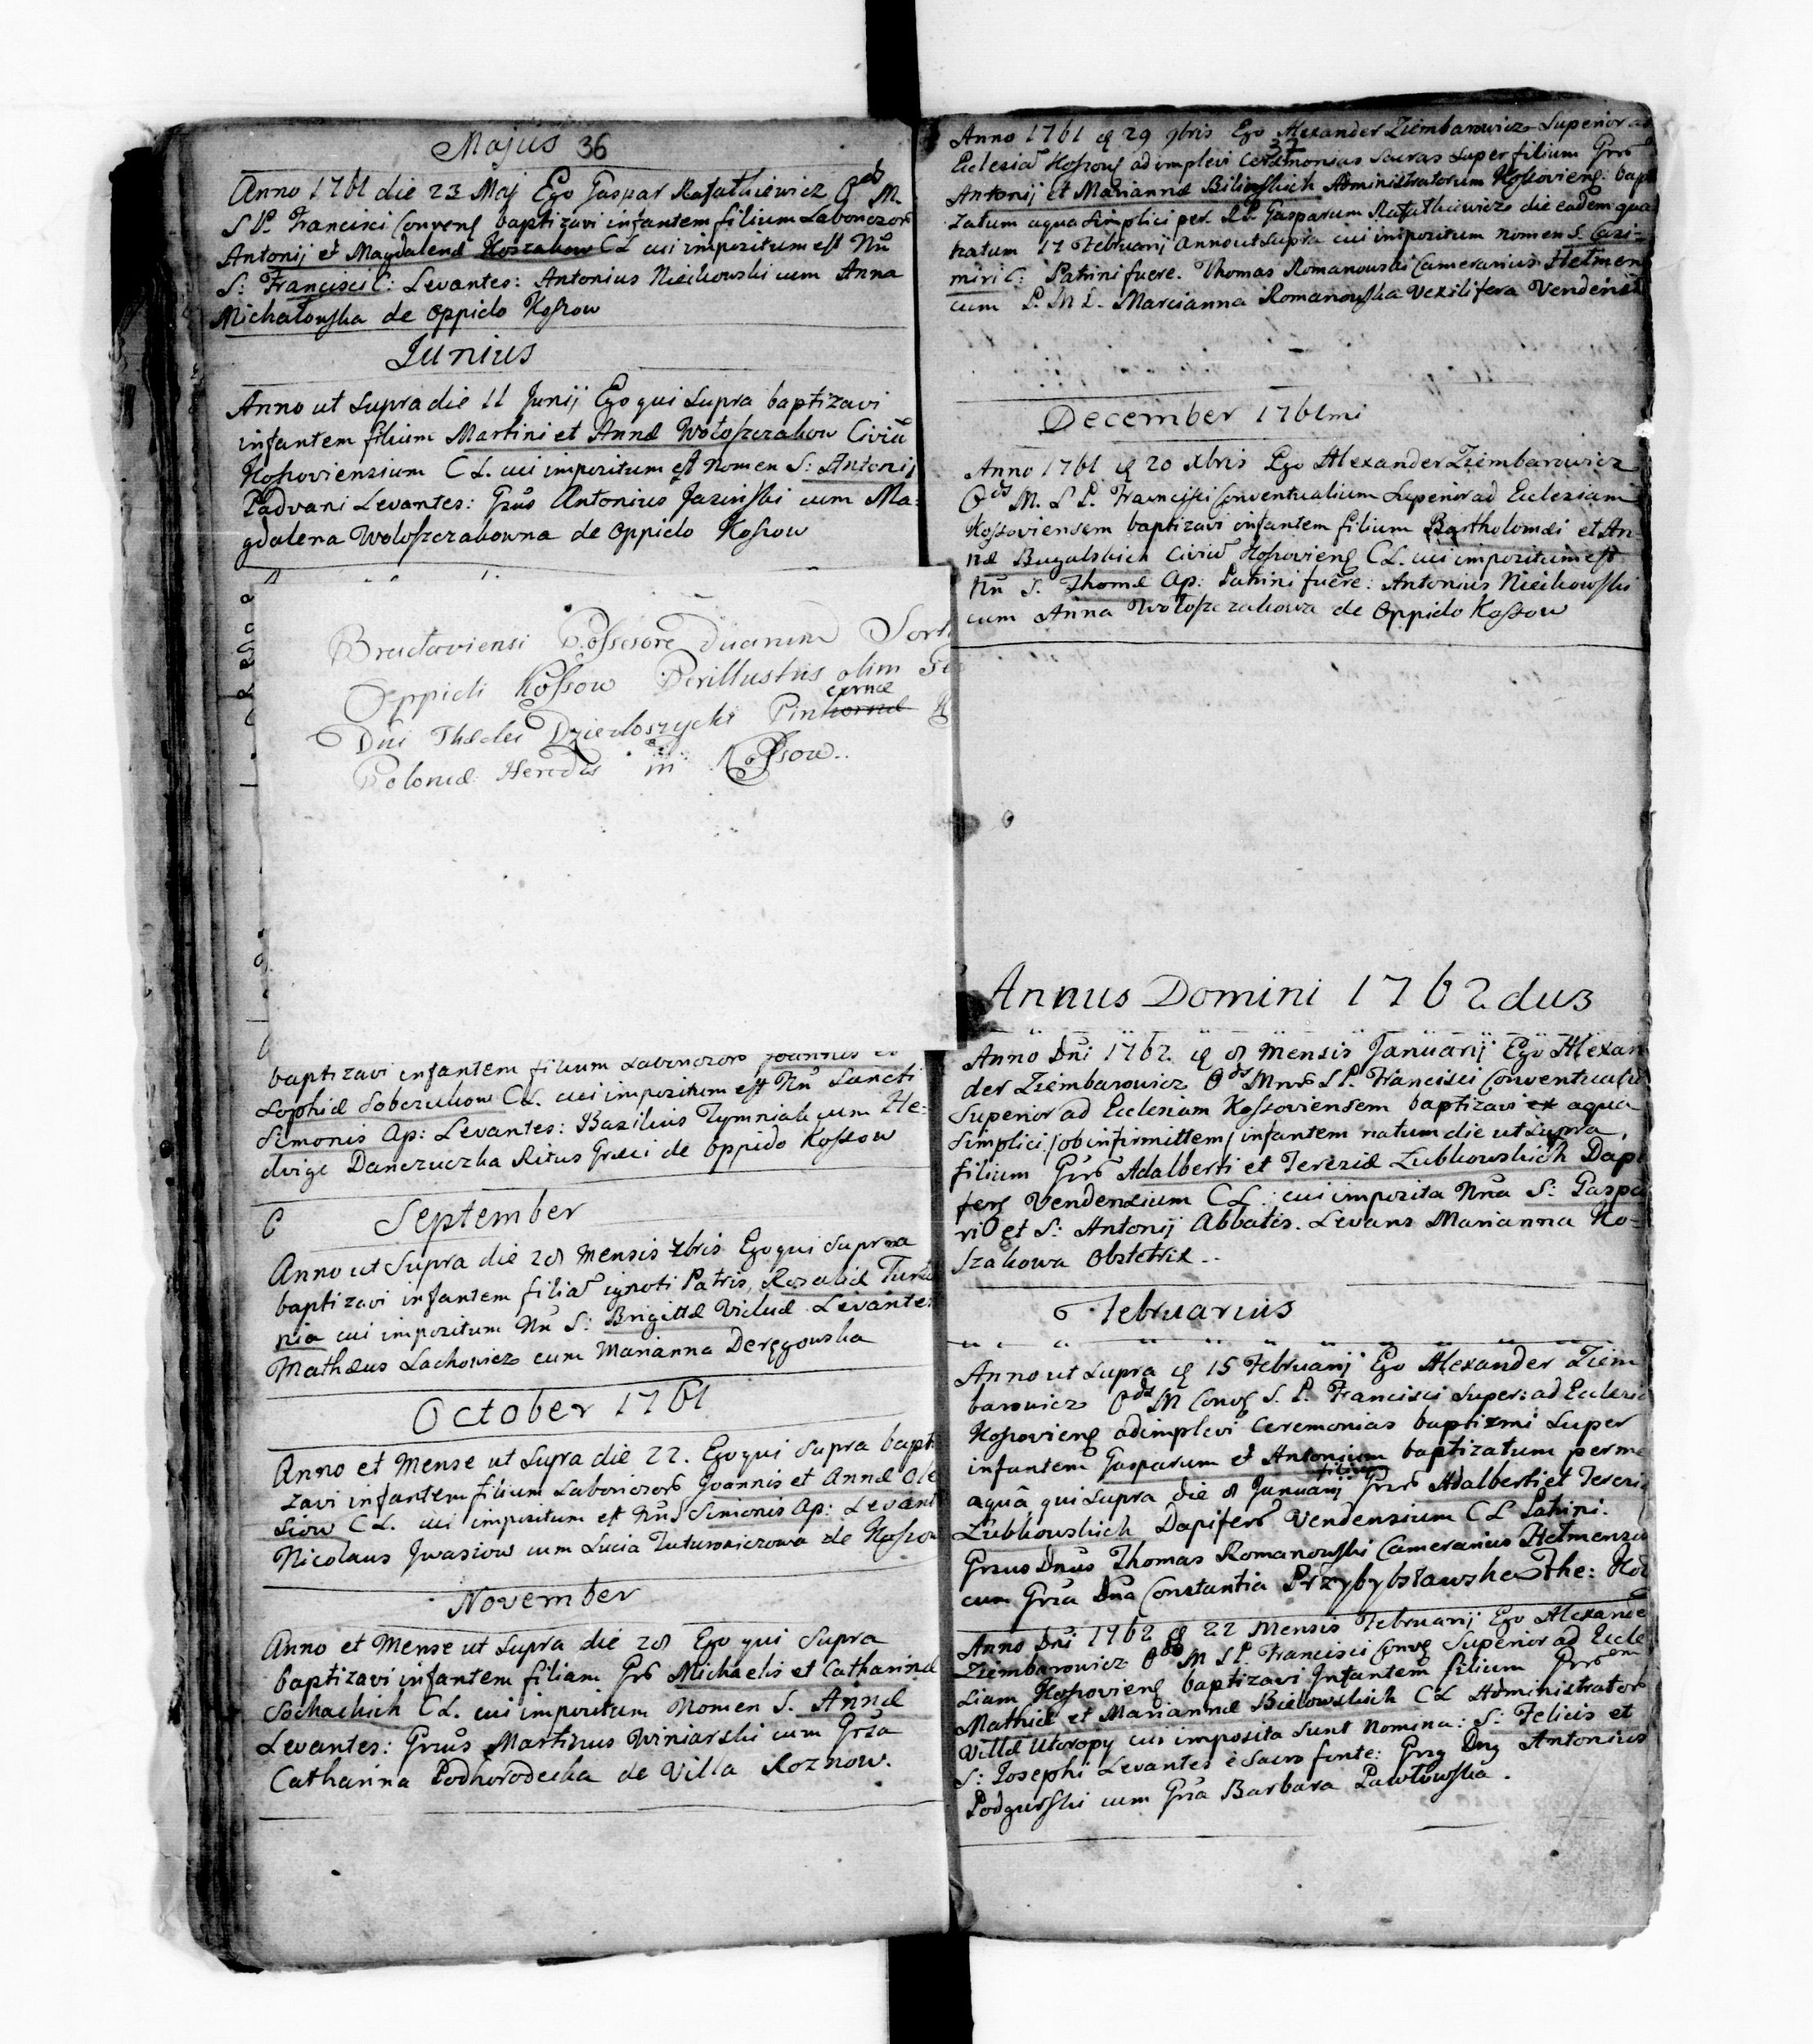 Majus 36
Anno 1761 die 23 Maj Ego Gaspar Rafałkiewicz Ords M.
S P. Francisci Conven baptizavi infantem filium Laboriozor
Antonij et Magdalenæ Koszakow CL cui impozitum est Nn
S: Francisci C: Levantes: Antonius Nieikowski cum Anna
Michałowska de Oppido Kossow
Junius
Anno ut Supra die 11 Junij Ego qui Supra baptizavi
infantem filium Martini et Annæ Wołoszczakow Civiu
Kossoviensium C L. cui impozitum est Nomen S: Antonij
Padvani Levantes: Grsus Antonius Jasinski cum Ma=
gdalena Woloszczakowna de Oppido Kossow
Braclaviensi Possesore Duarum Sort
Oppidi Kossow Perillustris olim
Dni Theclei Dzieduszycki Pin
cernæ
Poloniæ Heredis in Kossow..
baptizavi infantem filium Laboriozor Joannis et
Sophiæ Soberukow CL. cui impozitum est Nn Sancti
Simonis Ap: Levantes: Bazilius Tymniak cum He=
dvige Danczuczka Ritus Græci de Oppido Kossow
September
Anno ut Supra die 28 Mensis 7bris Ego qui Supra
baptizavi infantem filia ignoti Patris, Rozaliæ
nia cui impozitum Nn S: Brigittæ Viduæ Levantes
Mathæus Lachowicz cum Marianna Deręgowska
October 1761
Anno et Mense ut Supra die 22. Ego qui Supra bapti
zavi infantem filium Laboriozor Joannis et Annæ Ole
siow CL. cui impozitum est Nn S Simonis Ap: Levant
Nicolaus Jwasiow cum Lucia Tutuwiczowa de Kossow
November
Anno et Mense ut Supra die 28 Ego qui Supra
baptizavi infantem filiam Grs Michaelis et Catharinæ
Sochackich CL. cui impozitum Nomen S. Annæ
Levantes: Grsus Martinus Winiarski cum Grsa
Catharina Podhorodecka de Villa Roznow.
Anno 1761 d 29 9bris Ego Alexander Ziembarowicz Superior ad
37
Eclesia Kossov adimplevi Ceremonias Sacras Super filium Grs
Antonij et Mariannæ Bilinskich Administratorum Kossovien: bapti
zatum aqua Simplici per R P. Gasparum Rafałkiewicz die eadem qua
natum 17 Februarij Anno ut Supra cui impozitum nomen S. Cazi=
miri C: Patrini fuere. Thomas Romanowski Camerarius Helmen
cum P. M D. Marcianna Romanowska Vexilifera Vendensi
December 1761mi
Anno 1761 d 20 Xbris Ego Alexander Ziembarowicz
Ords M. S P. Francisci Conventualium Superior ad Ecclesiam
Kossoviensem baptizavi infantem filium Bartholomæi et An-
næ Bugalskich Civiu Kossovien CL. cui impozitum est
Nn S. Thomæ Ap: Patrini fuere: Antonius Nieikowski
cum Anna Wołoszczakowa de Oppido Kossow
Annus Domini 1762dus
Anno Dni 1762 d 8 Mensis Januarij Ego Alexan
der Ziembarowicz Ords Mnor S P. Francisci Conventualiu
Superior ad Ecclesiam Kossoviensem baptizavi ex aqua
Simplici /ob infirmittem/ infantem natum die ut Supra,
filium Grs Adalberti et Tereziæ Zubkowskich Dapi
fer Vendensium CL: cui impozita Nna S: Gaspa
ri et S: Antonij Abbatis. Levans Marianna Ko=
szakowa Obstetrix..
Februarius
Anno ut Supra d 15 Februarij Ego Alexander Ziem
barowicz Ords M Conv S. P. Francisci Super: ad Ecclesia
Kossovien adimplevi Ceremonias baptizmi Super
infantem Gasparum et Antonium baptizatum per me
filium
aquâ qui Supra die 8 Januarij Grs Adalberti et Terezi
Zubkowskich Dapifer Vendensium CL Patrini.
Grsus Dnus Thomas Romanowski Camerarius Helmensis
cum Grsa Dna Constantia Przybysławska The:
Anno Dni 1762 d 22 Mensis Februarij Ego Alexande
Ziembarowicz Ords M S P. Francisci Conv Superior ad Eccle
siam Kossovien baptizavi Infantem filium
Mathiæ et Mariannæ Bielowskich CL Administrator
Villæ Utoropy cui imposita Sunt Nomina: S: Felicis et
S: Josephi Levantes è Sacro fonte: Grs Dns Antonius
Podgurski cum Grsa Barbara Pawłowska.